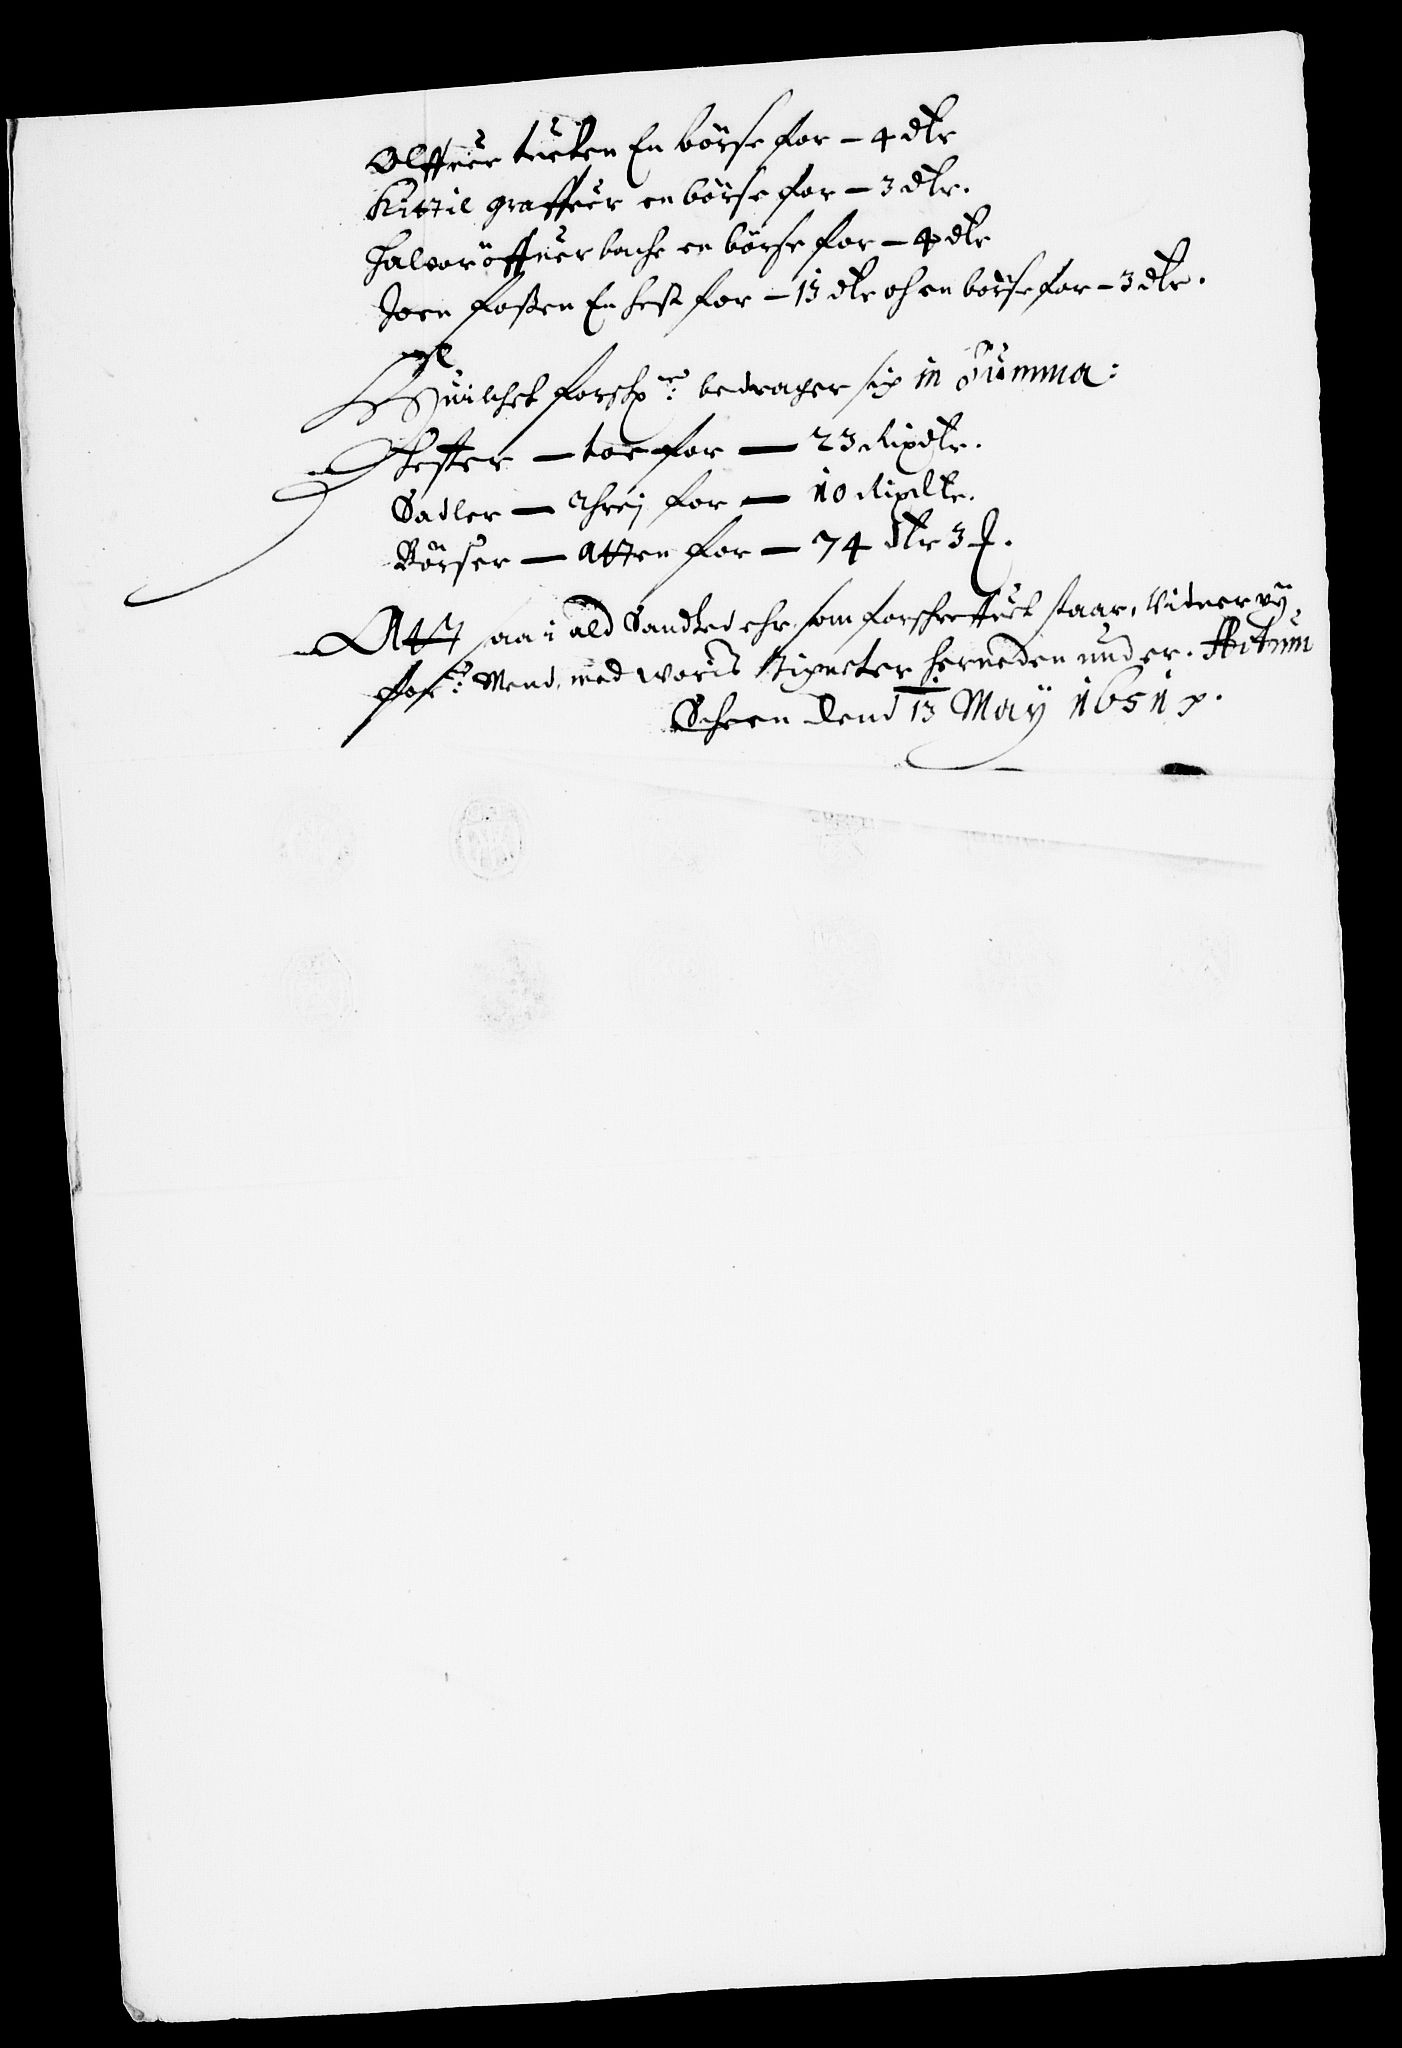 Olffuer tueten En börse for – 4 dlr
Kittil graffuer en börse for – 3 dlr.
Haluor öffuerbache en börse for – 4 dlr
Joen foßen En hest for – 13 dlr och en börse for – 3 dlr.
Huilchet forschr: bedrager sig in Summa:
Hester – toe for – 23 Rixdlr.
Sadler – threj for – 10 Rixdlr.
Börser – Atten for – 74 dlr 3
Att saa i ald Sandhed ehr som forschreffuet staar, Vidner vÿ
for: Mend, med woris Signeter herneden under. Actum
Scheen dend 13 Maÿ 1651